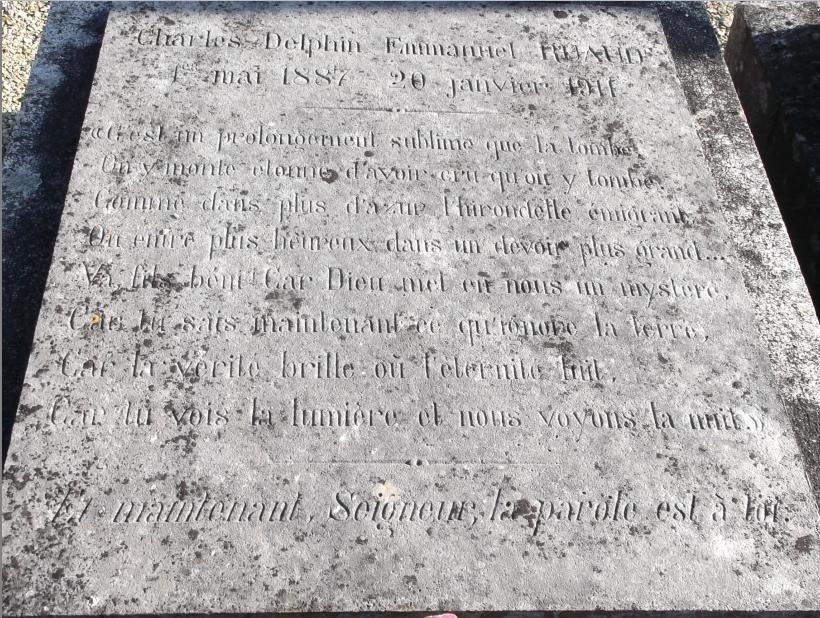 Charles Delphin Emmanuel
1er mai 1887 20 janvier 1911
« C'est un prolongement sublime que la tombe.
On y monte étonné d'avoir cru qu'on y tombe.
Comme dans plus d'azur l'hirondelle émigrant,
On entre plus heureux dans un devoir plus grand...
Va, fils béni ! Car Dieu met en nous un mystère,
Car tu sais maintenant ce qu'ignore la terre,
Car la vérité brille où l'éternité luit,
Car tu vois la lumière et nous voyons la nuit. »
Et maintenant, Seigneur, la parole est à toi.